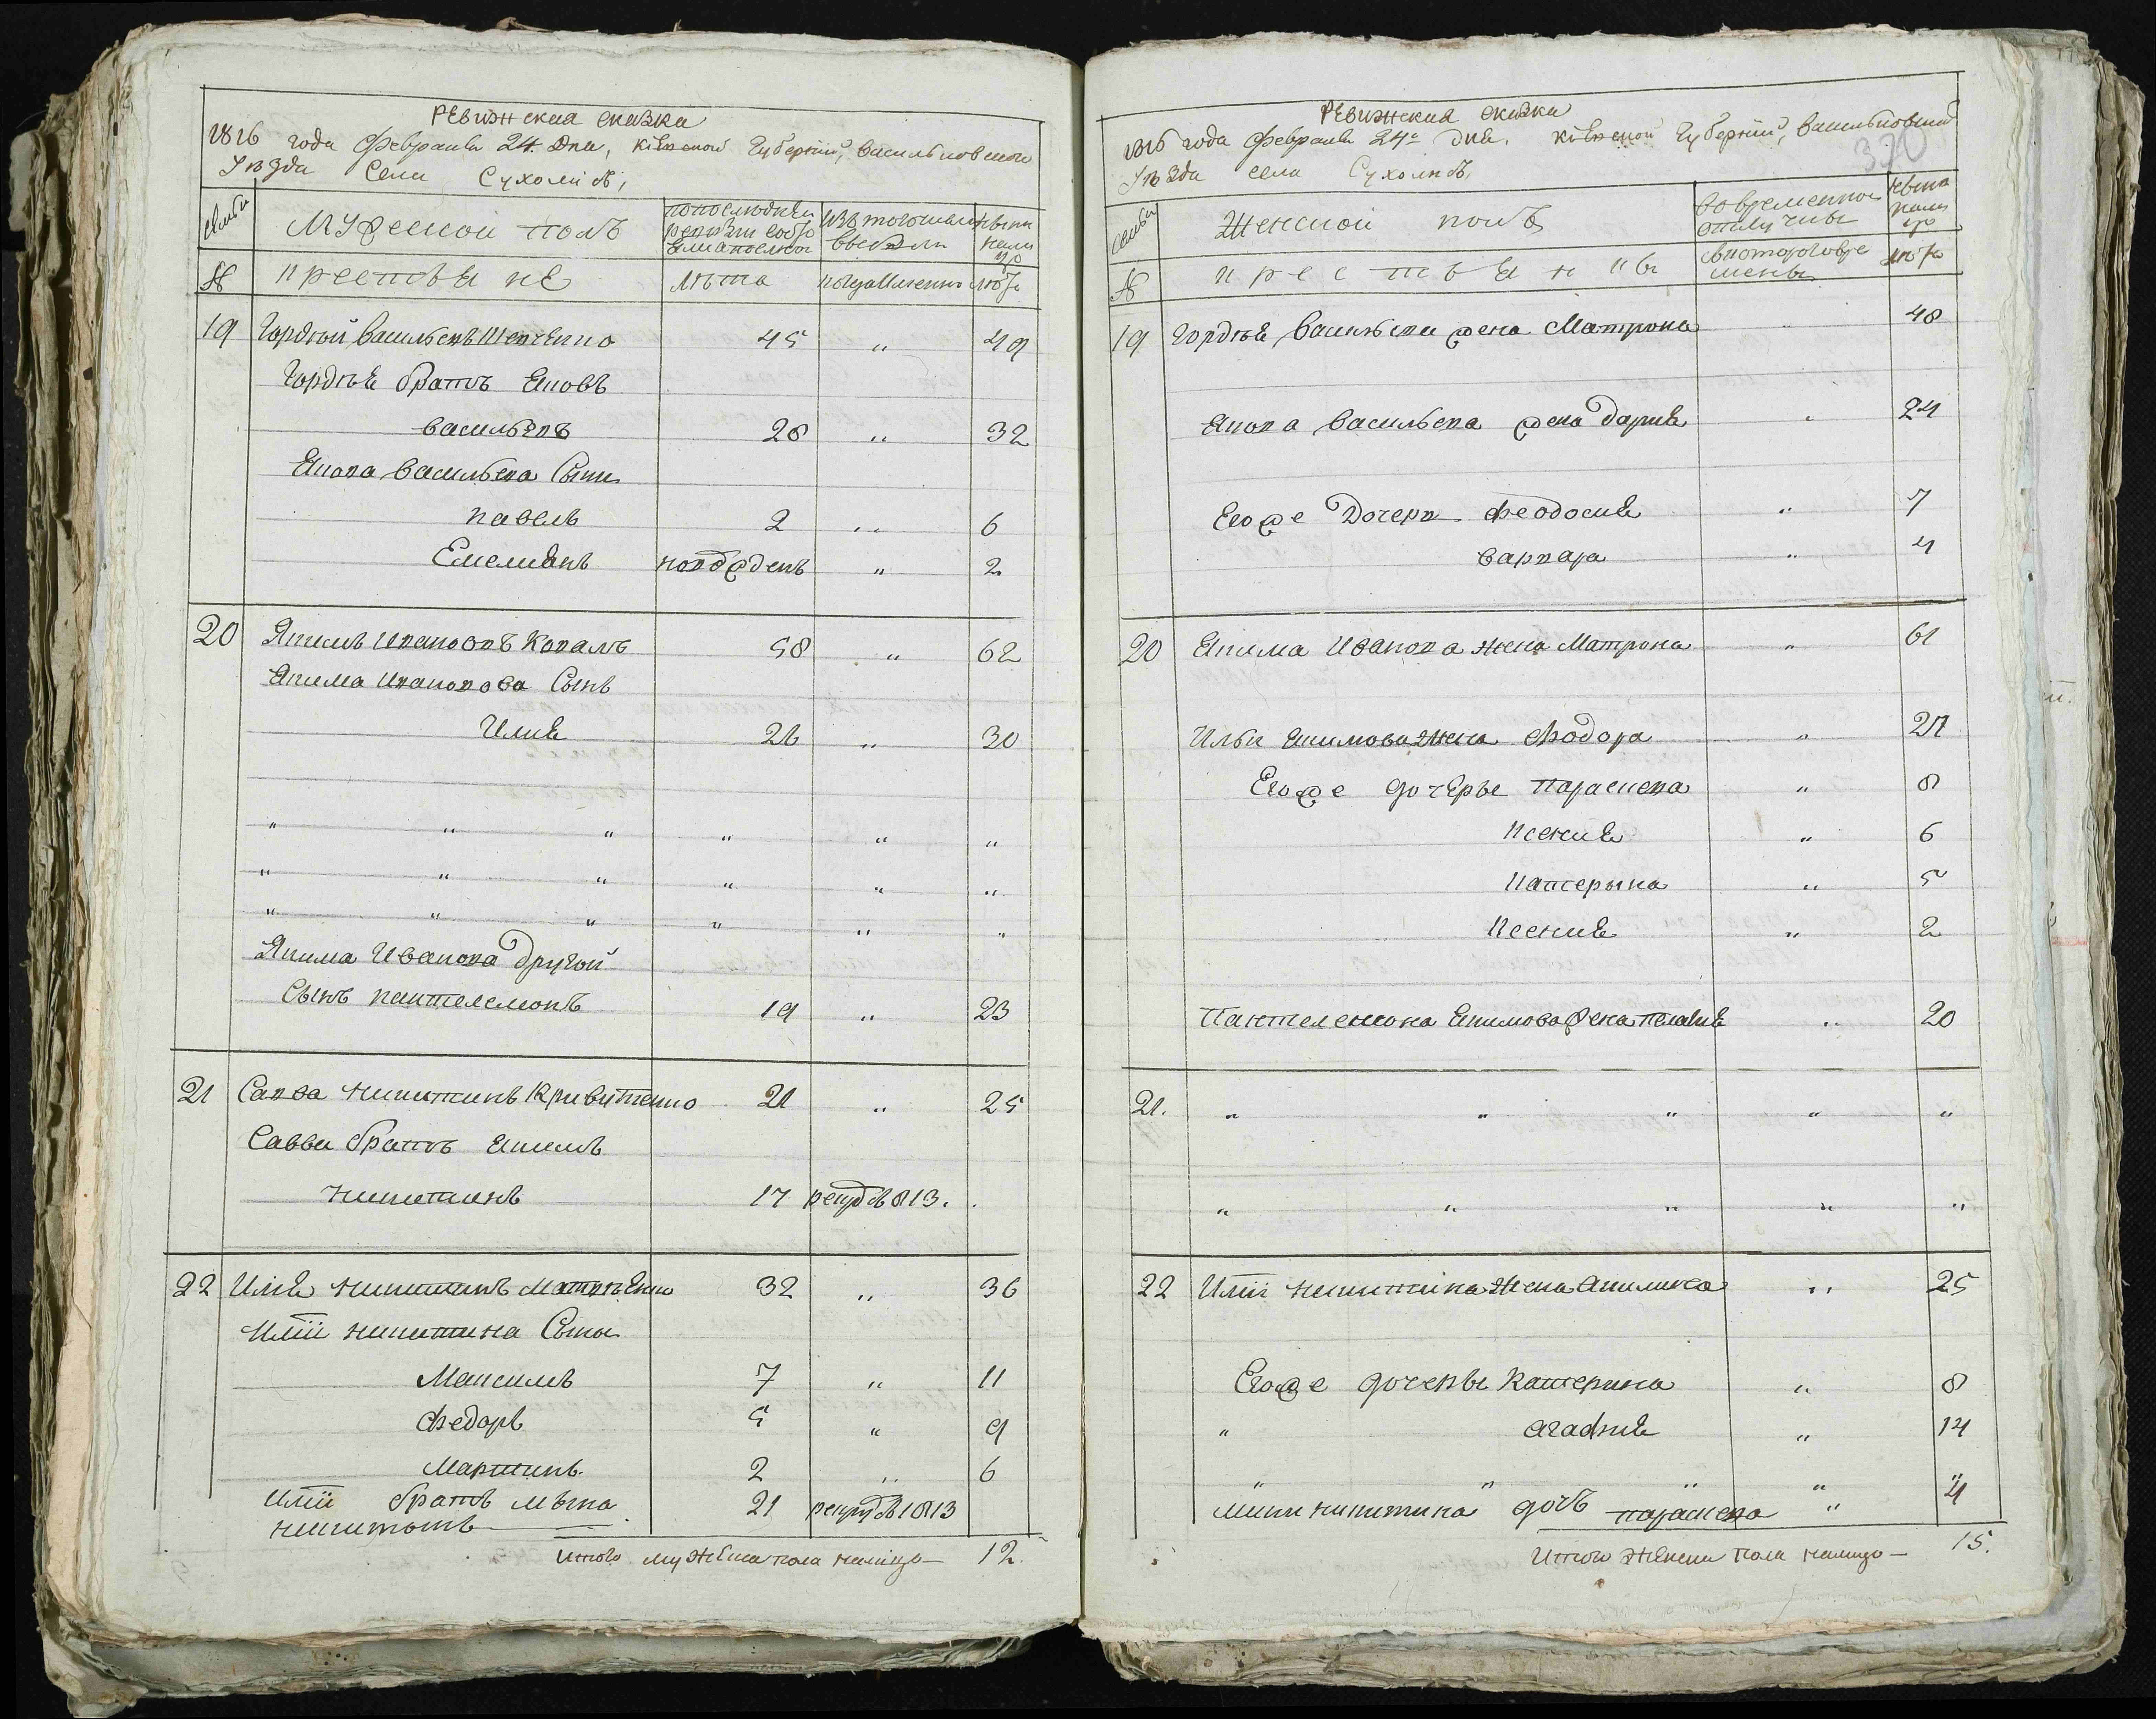 Ревижская сказка
1816 года Февраля 24. дня, Кіевской Губерніи, Васильковского
Уѣзда Села Сухолѣсъ,
Семьи
Мужеской полъ
По последней ревизіи состояло
Изъ того числа выбыло
Ныне на лицо
№
Крестьяне
Лѣта
Когда именно
Лѣта
19 Гордѣй Васильевъ Шевченко 45 „ 49
Гордѣя братъ Яковъ
Васильевъ 28 „ 32
Якова Васильева Сыны
Павелъ 2 „ 6
Емелиянъ новорожденъ „ 2
20 Якимъ Ивановъ Коваль 58 „ 62
Якима Иванова Сынъ
Илия 26 „ 30
„ „ „ „ „ „
„ „ „ „ „ „
„ „ „ „ „ „
Якима Иванова другой
Сынъ Пантелемонъ 19 „ 23
21 Савва Никитинъ 21 „ 25
Саввы братъ Якимъ
Никитинъ 17 рекрутъ 813.
22 Илия Никитинъ 32 „ 36
Иліи Никитина Сыны
Максимъ 7 „ 11
Федоръ 5 „ 9
Мартинъ 2 „ 6
Иліи братъ 21 рекрутъ 1813
Никитинъ
Итого мужеска пола налицо — 12.
Ревижская сказка
1816 года Февраля 24го дня. Кіевской Губерніи, Васильковской
Уѣзда села Сухолѣсъ,
Семьи
Женской полъ
Во временной отлучке
Ныне на лицо
№
Крестьянки
Съ которого времени
Лѣта
19 Гордѣя Васильева жена Матрона „ 48
Якова Васильева жена Дария „ 24
Его же Дочери Феодосия „ 7
Варвара „ 4
20 Якима Иванова жена Матрона „ 61
Ильи Якимова жена Фодора „ 27
Его же дочеры Параскева „ 8
Ксения „ 6
Катерына „ 5
Ксения „ 2
Пантелемона Якимова жена Пелагия „ 20
21. „ „ „ „ „
„ „ „ „ „
22 Иліи Никитина Жена Акилина „ 25
Его же дочеры Катерина „ 8
„ Агафия „ 14
„ „ „ „ „
Никитина дочь Параскева „ 4
Итого женска пола налицо — 15.